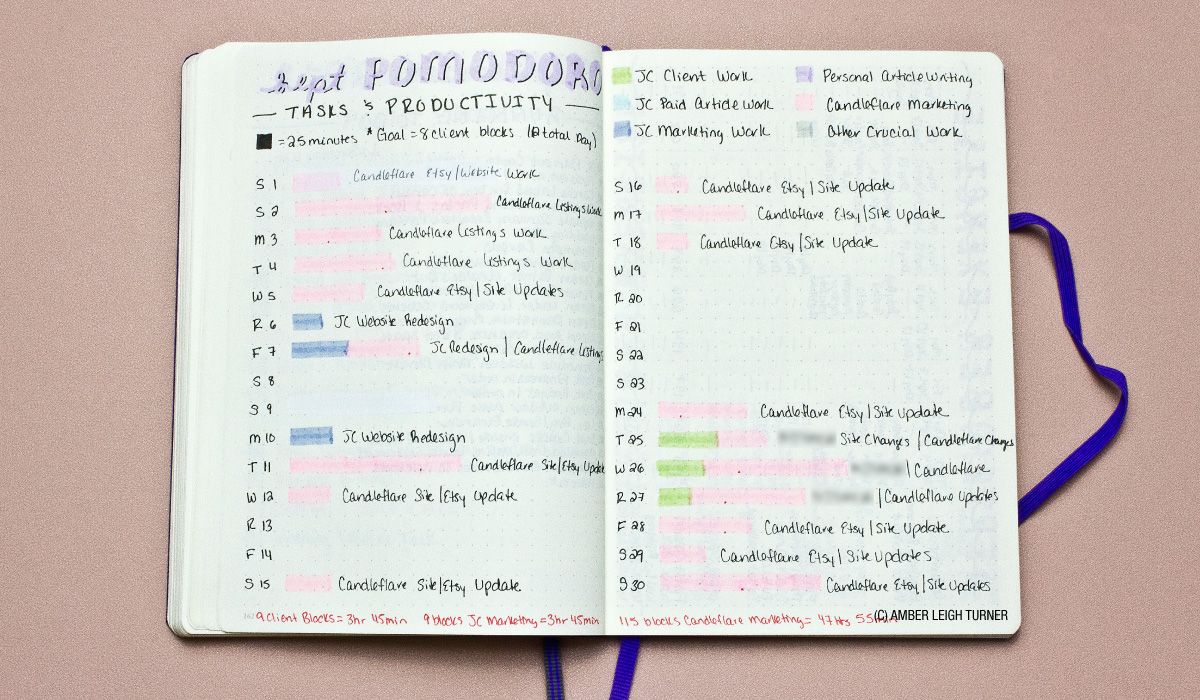 Sept POMODORO
TASKS & PRODUCTIVITY
= 25 minutes * Goal = 8 client blocks ( total Day)
S 1 Candleflare Etsy/Website Work
S 2 Candleflare Listings Work
M 3 Candleflare Listings Work
T 4 Candleflare Listings Work
W 5 Candleflare Etsy/Site Updates
R 6 JC Website Redesign
F 7 JC Redesign | Candleflare Listings
S 8
S 9
M 10 JC Website Redesign
T 11 Candleflare Site/Etsy Update
W 12 Candleflare Site/Etsy Update
R 13
F 14
S 15 Candleflare Site/Etsy Update
9 Client Blocks = 3hr 45min 9 blocks JC Marketing = 3hr 45min
JC Client Work Personal Article Writing
JC Paid Article Work Candleflare Marketing
JC Marketing Work Other Crucial Work
S 16 Candleflare Etsy/Site Update
M 17 Candleflare Etsy/Site Update
T 18 Candleflare Etsy/Site Update
W 19
R 20
F 21
S 22
S 23
M 24 Candleflare Etsy/Site Update
T 25 Site Changes / Candleflare Changes
W 26 | Candleflare
R 27 | Candleflare Updates
F 28 Candleflare Etsy/Site Update
S 29 Candleflare Etsy/Site Updates
S 30 Candleflare Etsy/Site Updates
115 blocks Candleflare Marketing = 47hrs 55min
(C) AMBER LEIGH TURNER